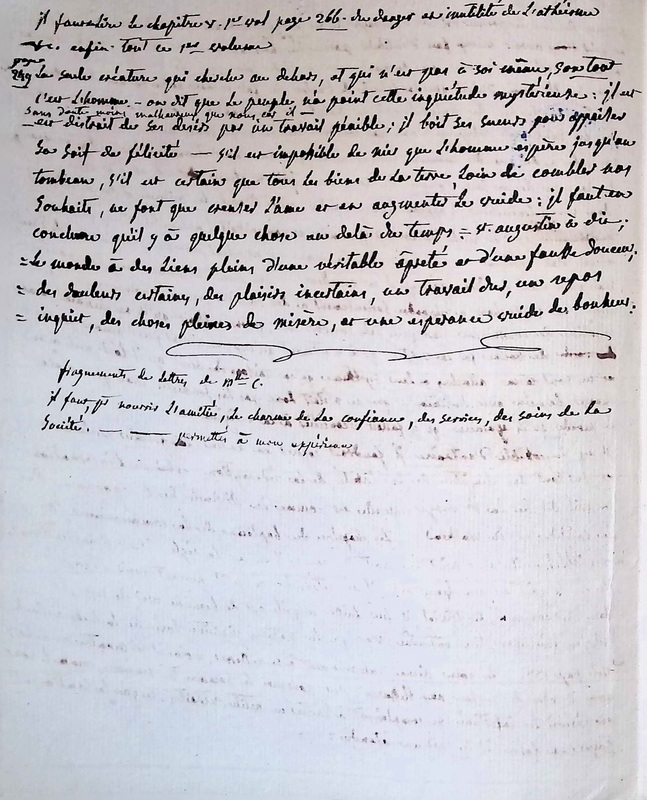 il faut lire le chapitre v. 1er vol page 266. du danger et inutilité de L'athéisme
&c. enfin tout ce 1er volume
page
249 La seule créature qui cherche au dehors, et qui n'est pas à soi même, son tout
c'est L'homme - on dit que Le peuple, n'a point cette inquiétude mystérieuse : il est
sans doute moins malheureux que nous, car il
- est distrait de ses désirs par un travail pénible ; il boit ses sueurs pour appaiser
Sa Soif de félicité — S'il est impossible de nier que L'homme espère jusqu'au
tombeau, S'il est certain que tous Les biens de La terre Loin de combler nos
Souhaits, ne font que creuser L'âme et en augmenter Le vuide : il faut en
conclure qu'il y à quelque chose au delà du temps = st augustin à dit ;
= Le monde à des Liens pleins d'une véritable âpreté et d'une fausse douceur,
= des douleurs certaines, des plaisirs incertains, un travail dur, un repos
= inquiet, des choses pleines de misère, et une esperance vuide de bonheur.
fragments de Lettres de mlle C.
il faut, pr nourrir L'amitié, Le charme de La confiance, des services, des soins de La
Société. — — permettés à mon